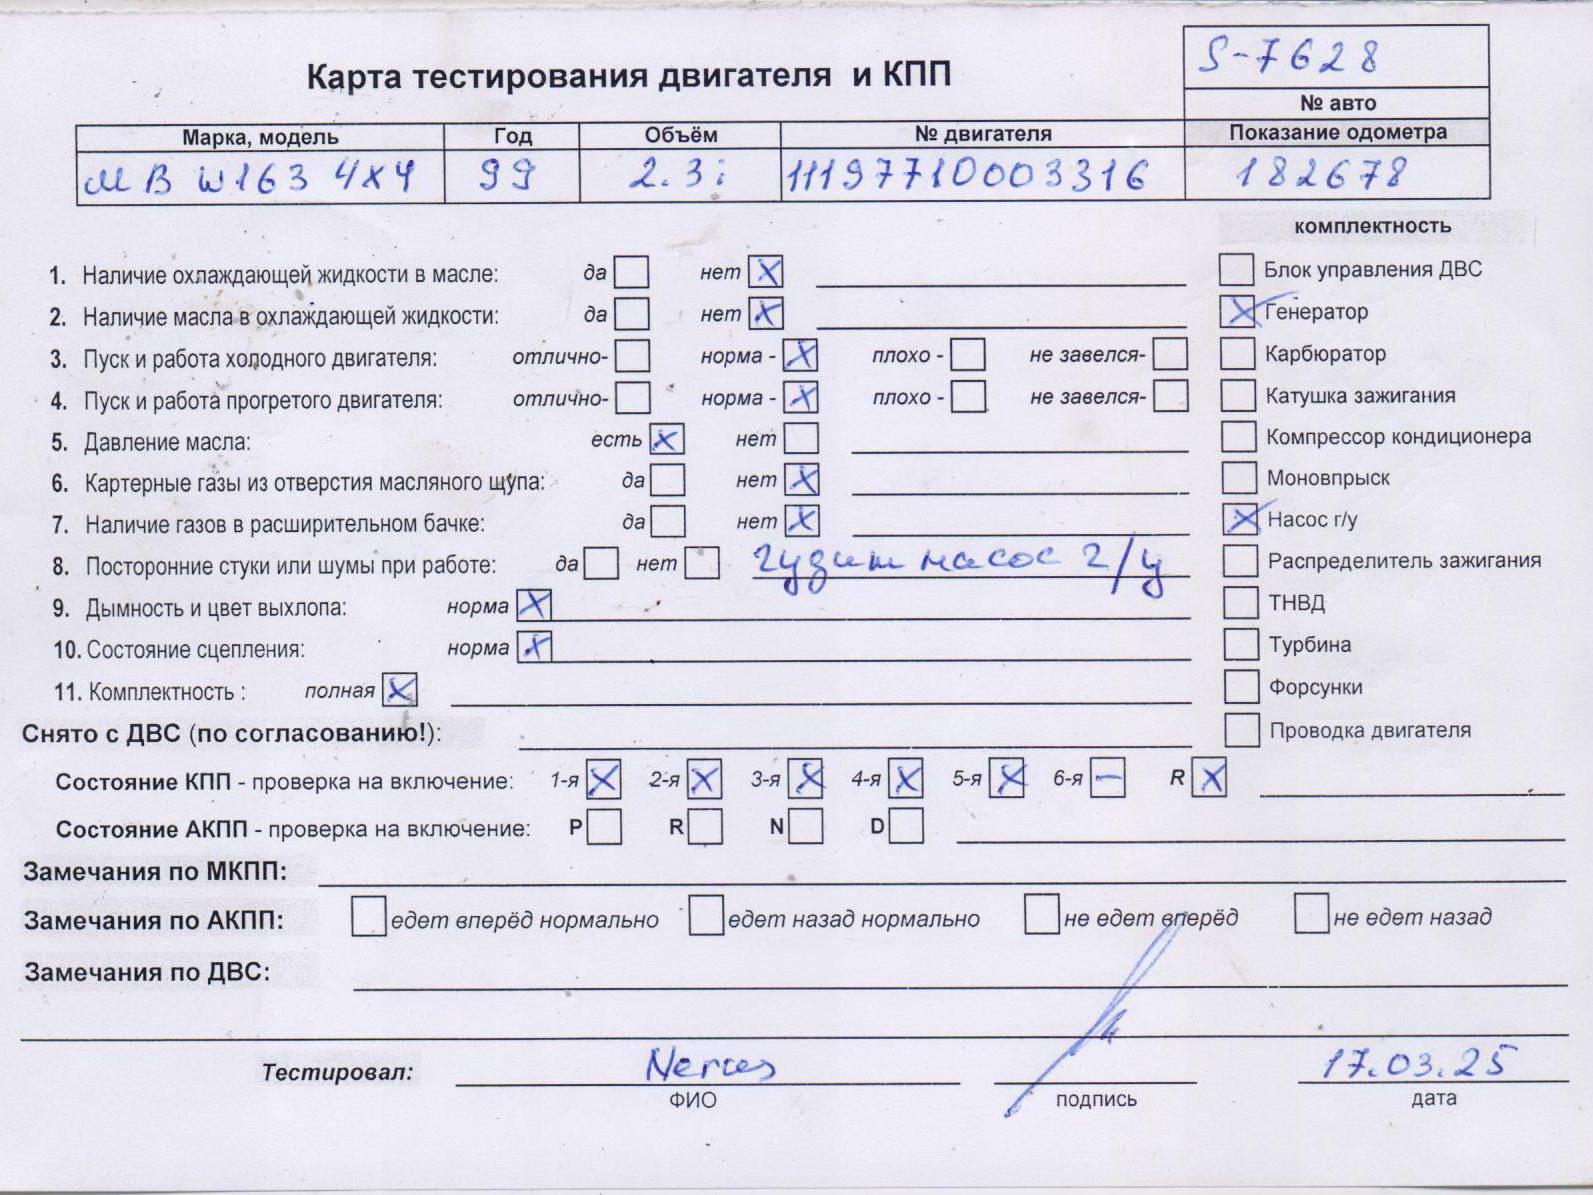 S-7628
Карта тестирования двигателя и КПП
№ авто
Марка, модель Год Объём № двигателя Показание одометра
MB W163 4x4 99 2.3i 11197710003316 182678
комплектность
1. Наличие охлаждающей жидкости в масле: да нет X Блок управления ДВС
2. Наличие масла в охлаждающей жидкости: да нет X X Генератор
3. Пуск и работа холодного двигателя: отлично- норма - X плохо - не завелся- Карбюратор
4. Пуск и работа прогретого двигателя: отлично- норма - X плохо - не завелся- Катушка зажигания
5. Давление масла: есть X нет Компрессор кондиционера
6. Картерные газы из отверстия масляного щупа: да нет X Моновпрыск
7. Наличие газов в расширительном бачке: да нет X X Насос г/у
8. Посторонние стуки или шумы при работе: да нет гудит насос г/у Распределитель зажигания
9. Дымность и цвет выхлопа: норма X ТНВД
10. Состояние сцепления: норма X Турбина
11. Комплектность : полная X Форсунки
Снято с ДВС (по согласованию!): Проводка двигателя
Состояние КПП - проверка на включение: 1-я X 2-я X 3-я X 4-я X 5-я X 6-я – R X
Состояние АКПП - проверка на включение: P R N D
Замечания по МКПП:
Замечания по АКПП: едет вперёд нормально едет назад нормально не едет вперёд не едет назад
Замечания по ДВС:
Тестировал: 17.03.25
ФИО подпись дата